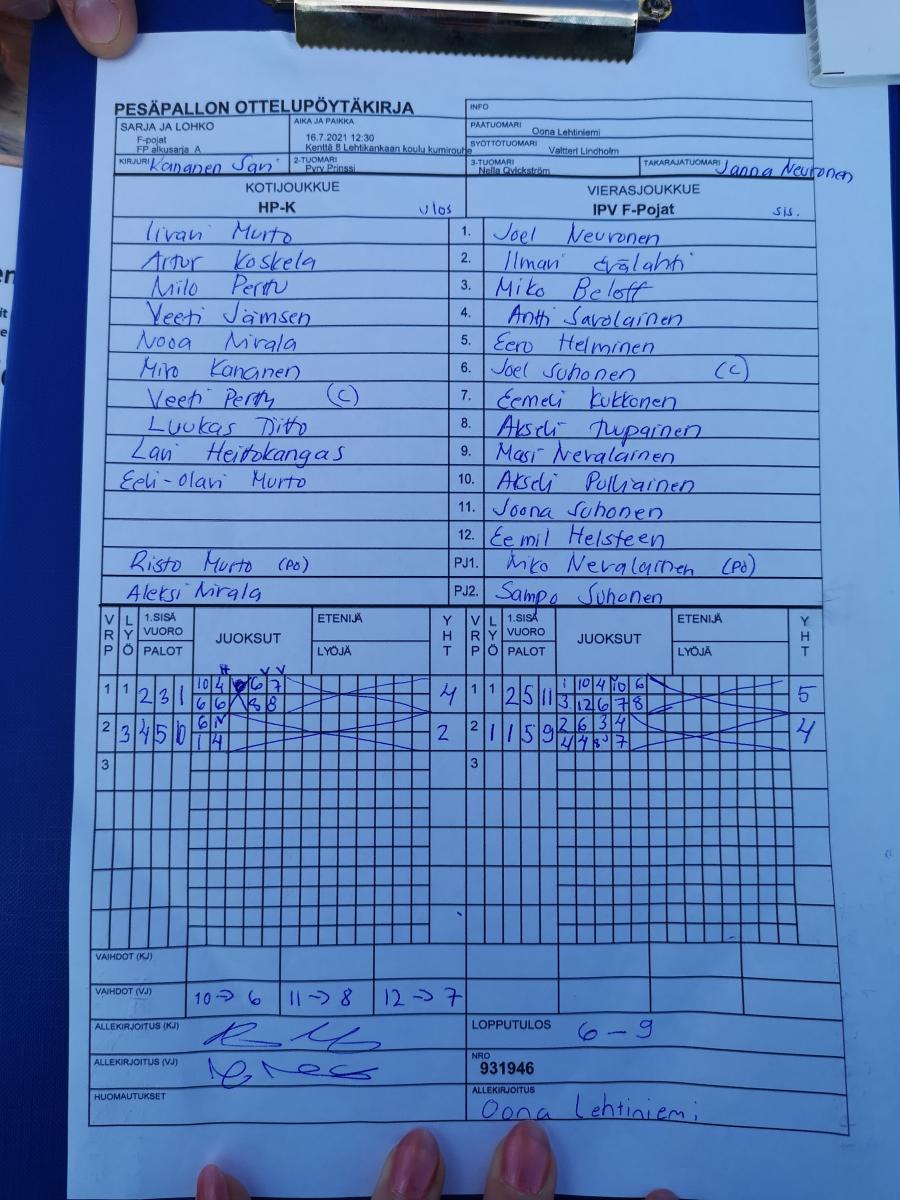 PESÄPALLON OTTELUPÖYTÄKIRJA
INFO
SARJA JA LOHKO
F-pojat
FP alkusarja A
AIKA JA PAIKKA
16.7.2021 12:30
Kenttä 8 Lehtikankaan koulu kumirouhe
PÄÄTUOMARI
Oona Lehtiniemi
SYÖTTÖTUOMARI
Valtteri Lindholm
KIRJURI Kananen Sari
2-TUOMARI
Pyry Prinssi
3-TUOMARI
Nella Qvickström
TAKARAJATUOMARI Janna Neuvonen
KOTIJOUKKUE
HP-K ulos
VIERASJOUKKUE
IPV F-Pojat sis.
Iivari Murto 1. Joel Neuvonen
Artur Koskela 2. Ilmari Eválahti
Milo Perttu 3. Miko Beloff
Veeti Jämsen 4. Antti Savolainen
Nooa Nirala 5. Eero Helminen
Miro Kananen 6. Joel Suhonen (C)
Veeti Perttu (C) 7. Eemeli Kukkonen
Luukas Tiitto 8. Akseli Tupainen
Lavi Heittokangas 9. Masi Nevalainen
Eeli-Olavi Murto 10. Akseli Pulliainen
11. Joona Suhonen
12. Eemil Helsteen
Risto Murto (PÖ) PJ1. Niko Nevalainen (PÖ)
Aleksi Nirala PJ2. Sampo Suhonen
VRP LYÖ 1.SISÄ VUORO PALOT JUOKSUT ETENIJÄ LYÖJÄ YHT
VRP LYÖ 1.SISÄ VUORO PALOT JUOKSUT ETENIJÄ LYÖJÄ YHT
1 1 2 3 1 10 4 6 7 4
6 6 8 8
1 1 2 5 11 1 10 4 10 6 5
3 12 6 7 8
2 3 4 5 10 6 N 2
1 4
2 1 1 5 9 2 6 3 4 4
4 4 8 7
3 3
VAIHDOT (KJ)
VAIHDOT (VJ) 10 → 6 11 → 8 12 → 7
ALLEKIRJOITUS (KJ)
LOPPUTULOS 6 - 9
ALLEKIRJOITUS (VJ)
NRO
931946
HUOMAUTUKSET
ALLEKIRJOITUS
Oona Lehtiniemi